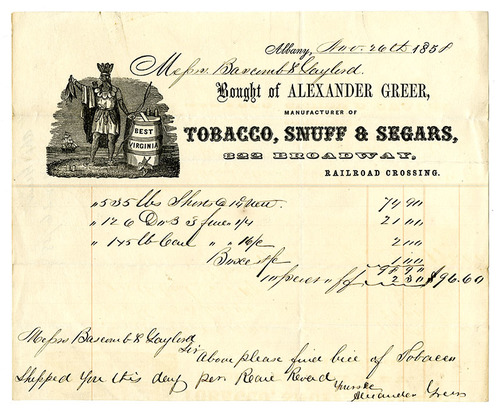 Albany, Nov. 26th 1858
Messrs. Bascomb & Gaylord.
Bought of ALEXANDER GREER,
MANUFACTURER OF
TOBACCO, SNUFF & SEGARS,
822 BROADWAY,
RAILROAD CROSSING.
BEST
VIRGINIA
" 535 lbs 74 90
" 126 Do 21 00
" 145 lb " " 16/c 2 00
Boxes 1 00
98 90
2 30 $96.60
Messrs Bascomb & Gaylord
Sir Above please find bill of Tobacco
Shipped you this day per Rail Road
Yours &c
Alexander Greer